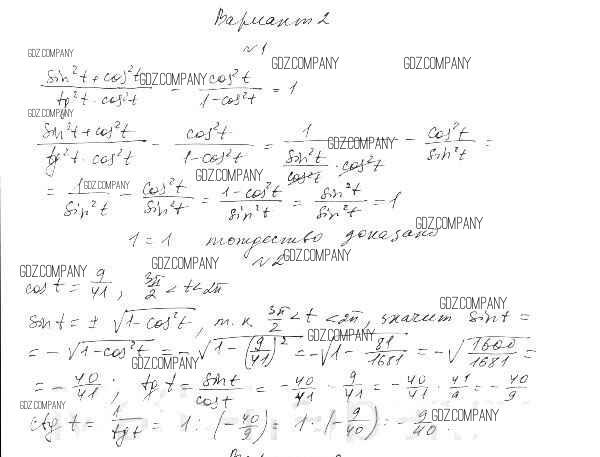 Вариант 2
№1
GDZ.COMPANY GDZ.COMPANY GDZ.COMPANY
(sin²t + cos²t)/(tg²t · cos²t) − cos²t/(1−cos²t) = 1
GDZ.COMPANY
GDZ.COMPANY
(sin²t + cos²t)/(tg²t · cos²t) − cos²t/(1−cos²t) = 1/(sin²t/cos²t · cos²t) − cos²t/sin²t =
GDZ.COMPANY
GDZ.COMPANY
= 1/sin²t − cos²t/sin²t = (1−cos²t)/sin²t = sin²t/sin²t = 1
GDZ.COMPANY
GDZ.COMPANY
1 = 1 тождество доказано
GDZ.COMPANY
№2
GDZ.COMPANY
GDZ.COMPANY GDZ.COMPANY
cos t = 9/41, 3π/2 < t < 2π
GDZ.COMPANY
sin t = ± √(1−cos²t), т.к. 3π/2 < t < 2π, значит sin t =
GDZ.COMPANY
= −√(1−cos²t) = −√(1−(9/41)²) = −√(1−81/1681) = −√(1600/1681) =
GDZ.COMPANY
= −40/41; tg t = sin t/cos t = −40/41 : 9/41 = −40/41 · 41/9 = −40/9
GDZ.COMPANY
ctg t = 1/tg t = 1 : (−40/9) = 1 · (−9/40) = −9/40.
GDZ.COMPANY